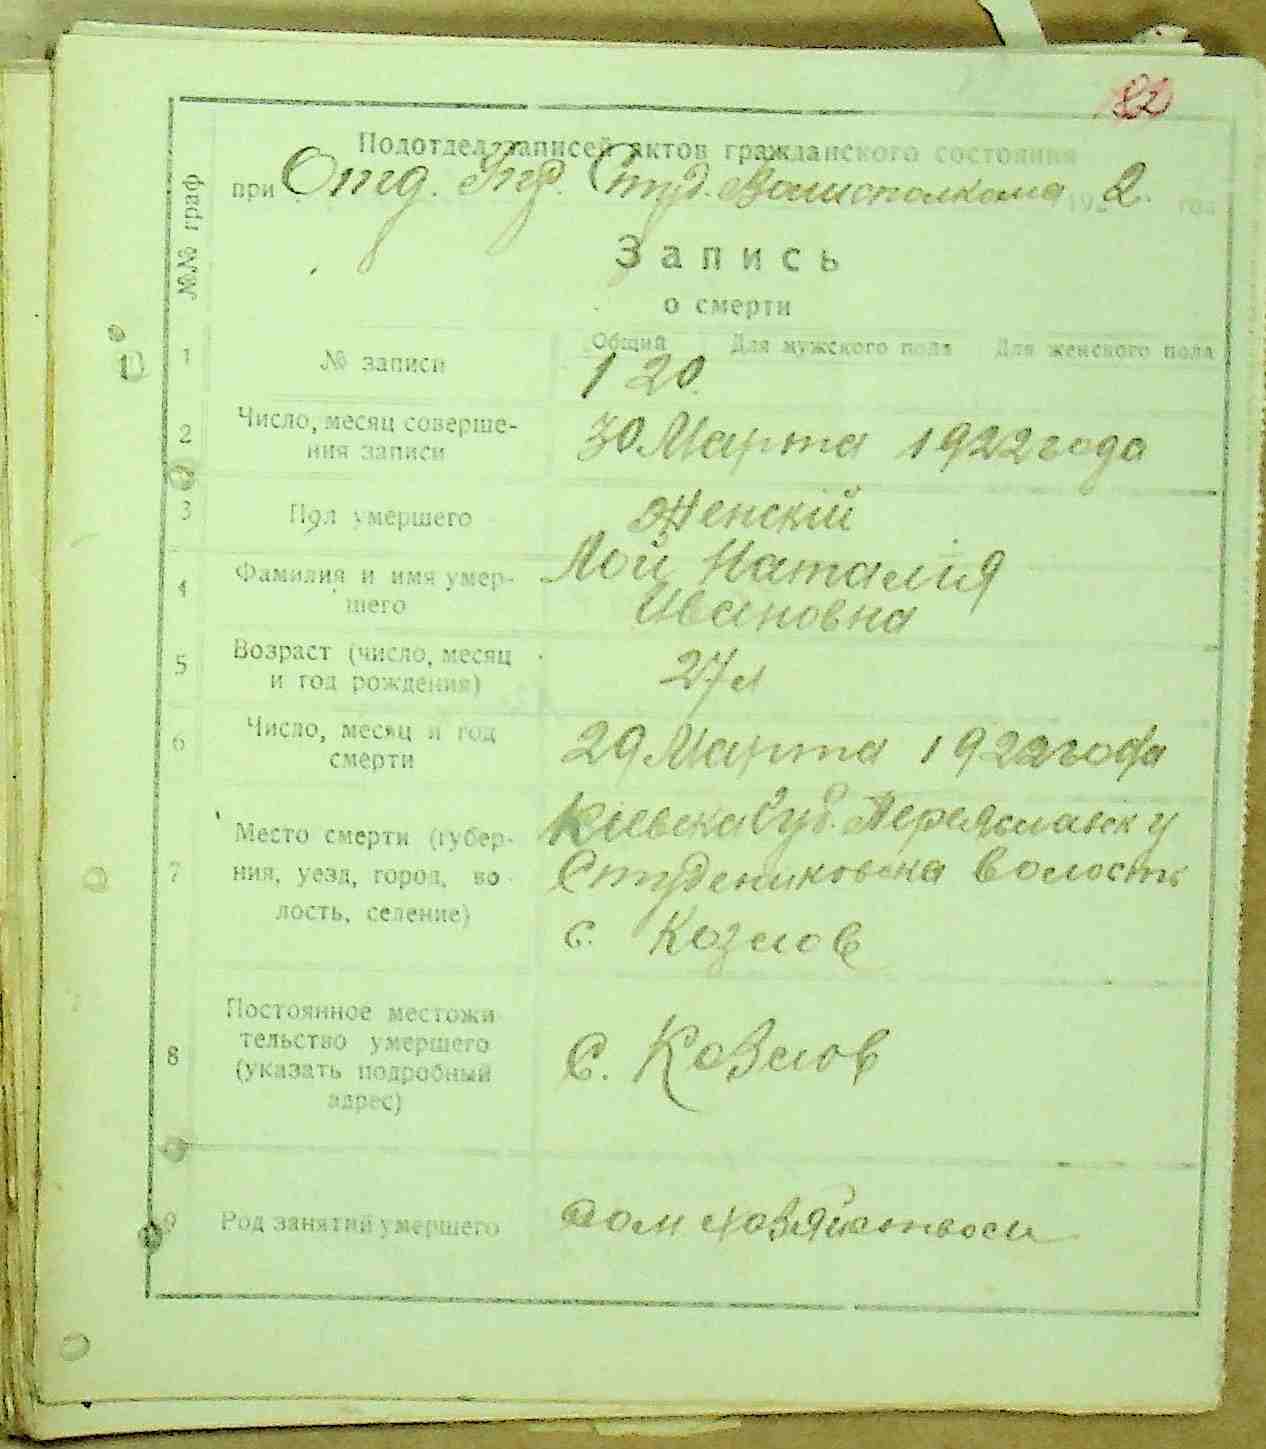 82
Подотдел записей актов гражданского состояния
при Отд. Упр. Студ. Волисполкома 192 2. год
Запись
о смерти
№№ граф
Общий Для мужского пола Для женского пола
1 № записи 120.
2 Число, месяц соверше-
ния записи 30 Марта 1922 года
3 Пол умершего Женскій
4 Фамилия и имя умер-
шего Лой Наталия
Ивановна
5 Возраст (число, месяц
и год рождения) 27 л
6 Число, месяц и год
смерти 29 Марта 1922 года
7 Место смерти (губер-
ния, уезд, город, во-
лость, селение) Киевска Губ. Переяславск у
Студениковска волость
с. Козлов
8 Постоянное местожи
тельство умершего
(указать подробный
адрес) С. Козлов
9 Род занятий умершего дом хозяйством